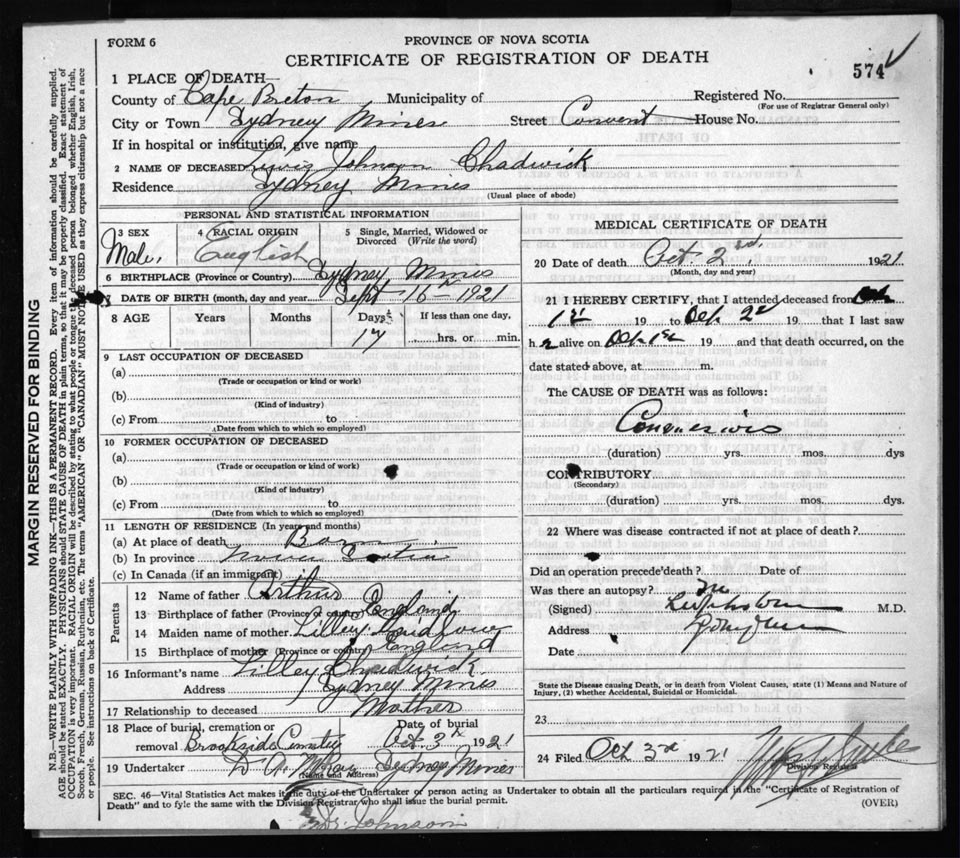 FORM 6
PROVINCE OF NOVA SCOTIA
CERTIFICATE OF REGISTRATION OF DEATH
574
1 PLACE OF DEATH—
County of Cape Breton Municipality of Registered No.
(For use of Registrar General only)
City or Town Sydney Mines Street Convent House No.
If in hospital or institution, give name
2 NAME OF DECEASED Lewis Johnson Chadwick
Residence Sydney Mines
(Usual place of abode)
PERSONAL AND STATISTICAL INFORMATION
3 SEX Male. 4 RACIAL ORIGIN English 5 Single, Married, Widowed or Divorced (Write the word)
6 BIRTHPLACE (Province or Country) Sydney Mines
7 DATE OF BIRTH (month, day and year) Sept 16th 1921
8 AGE Years Months Days If less than one day,
17 hrs. or min.
9 LAST OCCUPATION OF DECEASED
(a)
(Trade or occupation or kind or work)
(b)
(Kind of industry)
(c) From to
(Date from which to which so employed)
10 FORMER OCCUPATION OF DECEASED
(a)
(Trade or occupation or kind or work)
(b)
(Kind of industry)
(c) From to
(Date from which to which so employed)
11 LENGTH OF RESIDENCE (In years and months)
(a) At place of death Born
(b) In province Nova Scotia
(c) In Canada (if an immigrant)
Parents
12 Name of father Arthur
13 Birthplace of father (Province or country) England
14 Maiden name of mother Lilley
15 Birthplace of mother (Province or country) England
16 Informant's name Lilley Chadwick
Address Sydney Mines
17 Relationship to deceased Mother
18 Place of burial, cremation or removal Brookside Cemetery Date of burial Oct 3rd 1921
19 Undertaker D. A. Sydney Mines
(Name and Address)
MEDICAL CERTIFICATE OF DEATH
20 Date of death Oct 2nd. 1921
(Month, day and year)
21 I HEREBY CERTIFY, that I attended deceased from Oct
1st 19 to Oct 2d 19 that I last saw
h alive on Oct 1st 19 and that death occurred, on the
date stated above, at m.
The CAUSE OF DEATH was as follows:
(duration) yrs. mos. dys
CONTRIBUTORY
(Secondary)
(duration) yrs. mos. dys.
22 Where was disease contracted if not at place of death?
Did an operation precede death? Date of
Was there an autopsy? no
(Signed) M.D.
Address
Date
State the Disease causing Death, or in death from Violent Causes, state (1) Means and Nature of
Injury, (2) whether Accidental, Suicidal or Homicidal.
23
24 Filed Oct 3rd 1921
Division Registrar
SEC. 46—Vital Statistics Act makes it the duty of the Undertaker or person acting as Undertaker to obtain all the particulars required in the "Certificate of Registration of
Death" and to fyle the same with the Division Registrar who shall issue the burial permit.
(OVER)
Dr. Johnson
MARGIN RESERVED FOR BINDING
N.B.—WRITE PLAINLY WITH UNFADING INK—THIS IS A PERMANENT RECORD. Every item of information should be carefully supplied.
AGE should be stated EXACTLY. PHYSICIANS should STATE CAUSE OF DEATH in plain terms, so that it may be properly classified. Exact statement of
OCCUPATION is very important. RACIAL ORIGIN will be described by stating to what people or tongue the deceased person belonged whether English, Irish,
Scotch, French, German, Russian, Ruthenian, etc. The terms "AMERICAN" OR "CANADIAN" MUST NOT BE USED as they express citizenship but not a race
or people. See instructions on back of Certificate.